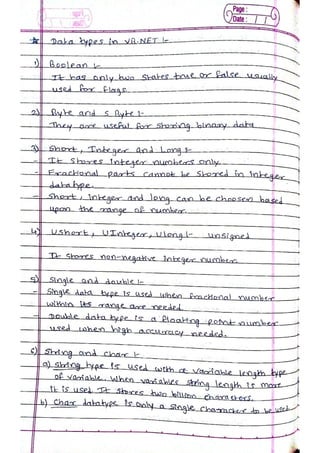 Page :
Date :
★ Data types in VB.NET :-
1) Boolean :-
It has only two states true or false usually
used for flags.
2) Byte and S Byte :-
They are useful for storing binary data
3) Short, Integer and Long :-
- It stores Integer numbers only.
- Fractional parts cannot be stored in integer
datatype.
- Short, integer and long can be choosen based
upon the range of number.
4) UShort, UInteger, Ulong :- unsigned
It stores non-negative Integer number
5) Single and double :-
- Single data type is used when fractional number
within its range are needed.
- Double data type is a floating point number
used when high accuracy needed.
6) String and char :-
a) String type is used with a variable length type
of variable. When variables string length is more
it is used It stores two billion characters.
b) Char datatype is only a single character to be used